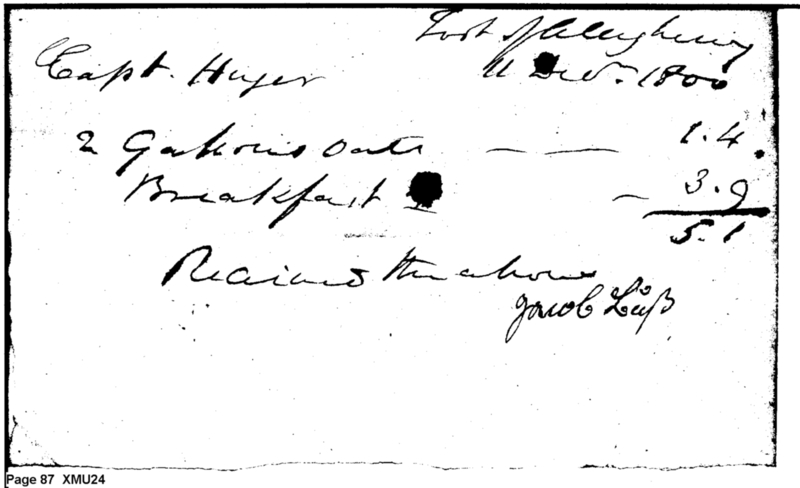 Foot of Alleghany
Capt. Huger 11 Decr. 1800
2 Gallons oats — — 1.4.
Breakfast — 3.9
5.1
Received the above
Jacob
Page 87 XMU24